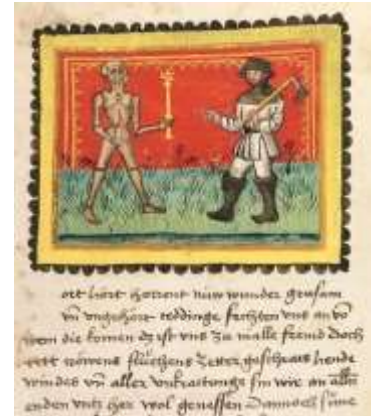 ort hort horrent nuw wunder grusam
vn̄ vngehort teddinge fechten vns an vō
wem die komen dz ist vns zu malle fremd Doch
trowens flůchens Zetter geschreis hende
windes vn̄ aller sin wir an allen
enden vntz her wol genessen Dannoch sune